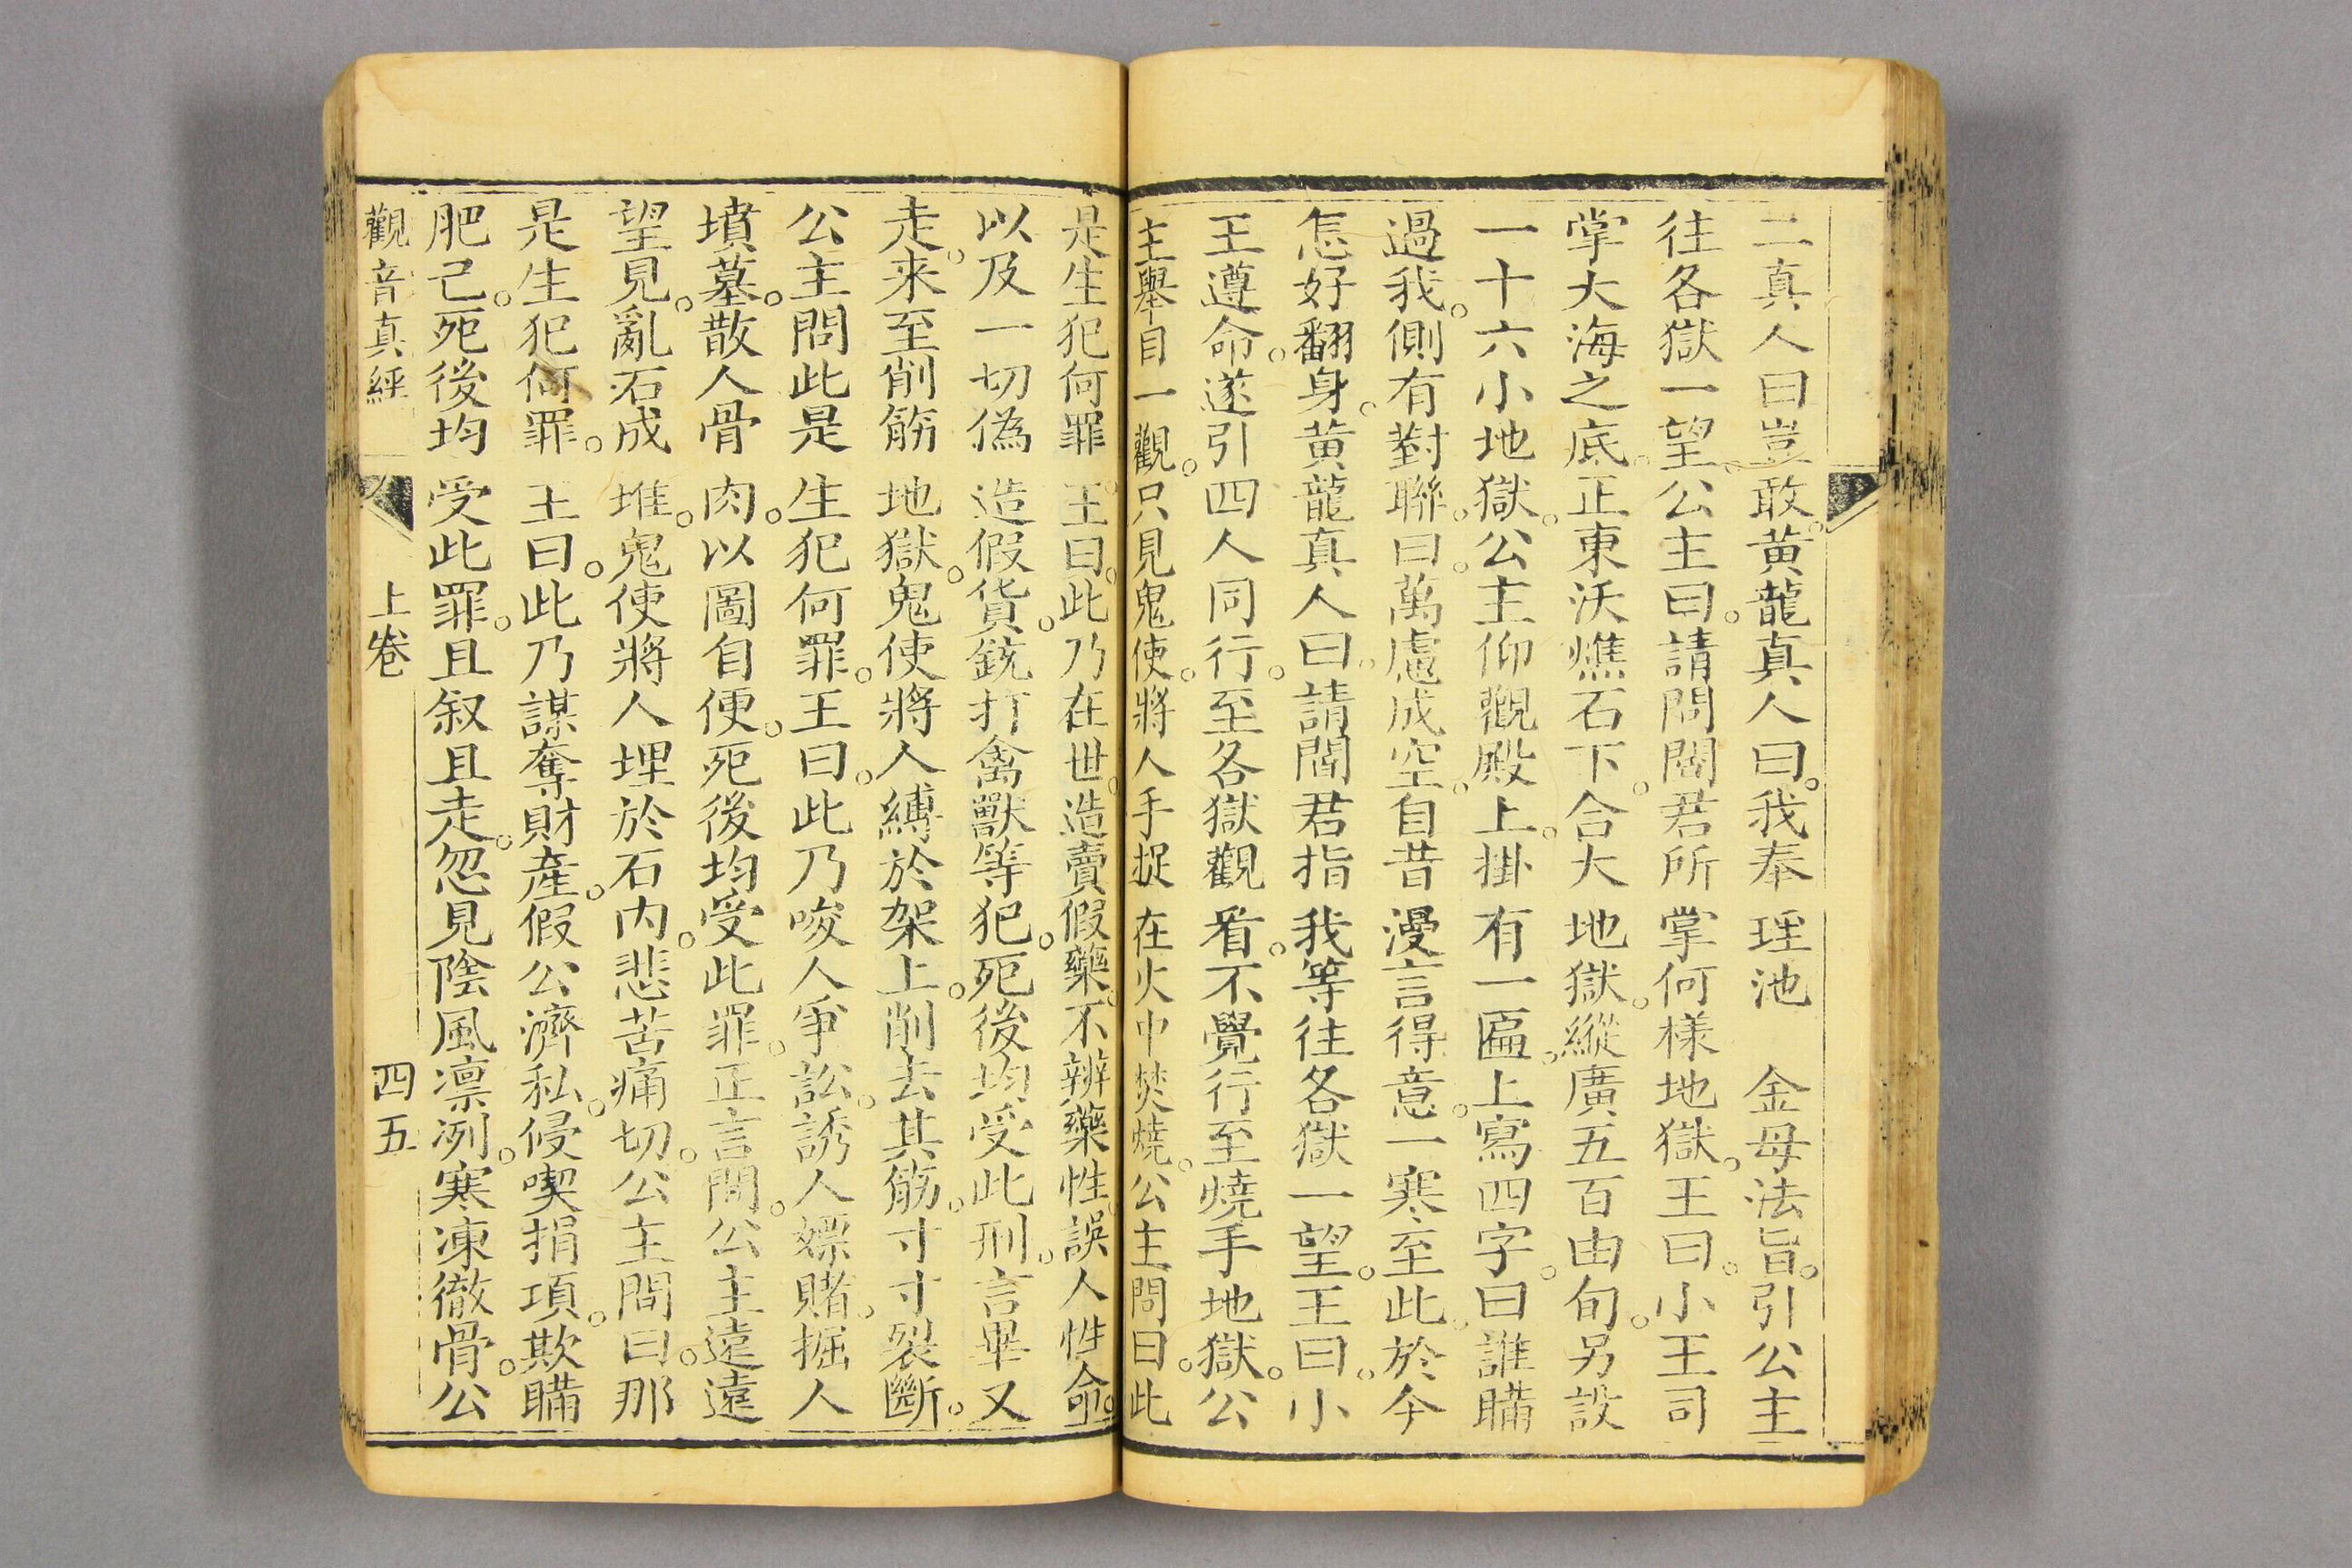 二真人曰豈敢。黄龍真人曰。我奉瑶池　金母法旨。引公主
往各獄一望。公主曰。請問閻君所掌何樣地獄。王曰。小王司
掌大海之底。正東沃燋石下。合大地獄。縱廣五百由旬。另設
一十六小地獄。公主仰觀殿上。掛有一匾。上寫四字。曰誰瞞
過我。側有對聯。曰。萬慮成空。自昔漫言得意。一寒至此。於今
怎好翻身。黄龍真人曰。請閻君指我等往各獄一望。王曰。小
王遵命。遂引四人同行。至各獄觀看。不覺行至燒手地獄。公
主舉目一觀。只見鬼使。將人手捉在火中焚燒。公主問曰。此
是生犯何罪。王曰。此乃在世。造賣假藥。不辨藥性。誤人性命。
以及一切僞造假貨。銃打禽獸等犯。死後均受此刑。言畢又
走。来至削筋地獄。鬼使將人縛於架上。削去其筋。寸寸裂斷。
公主問此是生犯何罪。王曰。此乃唆人爭訟。誘人嫖賭。掘人
墳墓。散人骨肉。以圖自便。死後均受此罪。正言間。公主遠遠
望見。亂石成堆。鬼使將人埋於石内。悲苦痛切。公主問曰。那
是生犯何罪。王曰。此乃謀奪財產。假公濟私。侵喫捐項。欺瞞
肥己。死後均受此罪。且叙且走。忽見陰風凛冽。寒凍徹骨。公
觀音真經　上卷　四五